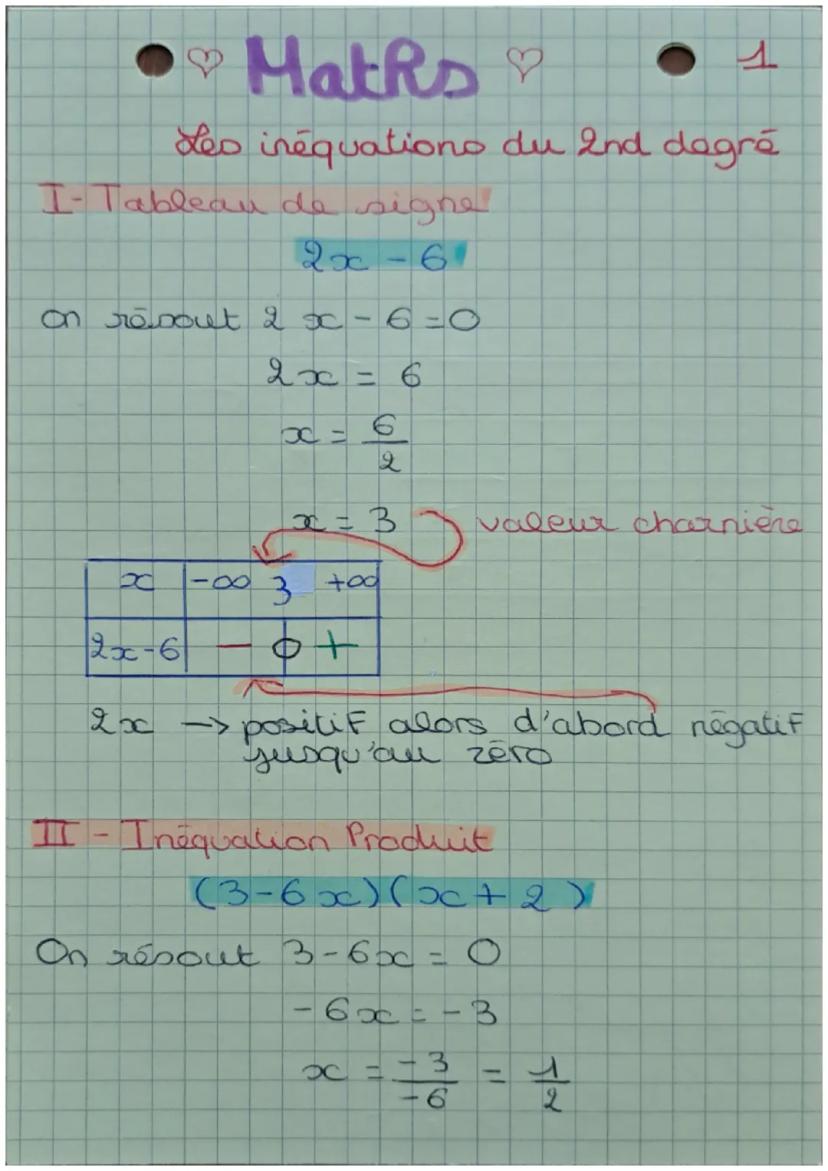 ♡ Maths ♡ 1
Les inéquations du 2nd degré
I- Tableau de signe
2x - 6
On résout 2x - 6 = 0
2x = 6
x = 6/2
x = 3 valeur charnière
x -∞ 3 +∞
2x-6 - 0 +
2x → positif alors d'abord négatif
jusqu'au zéro
II - Inéquation Produit
(3-6x)(x+2)
On résout 3-6x = 0
-6x = -3
x = -3/-6 = 1/2